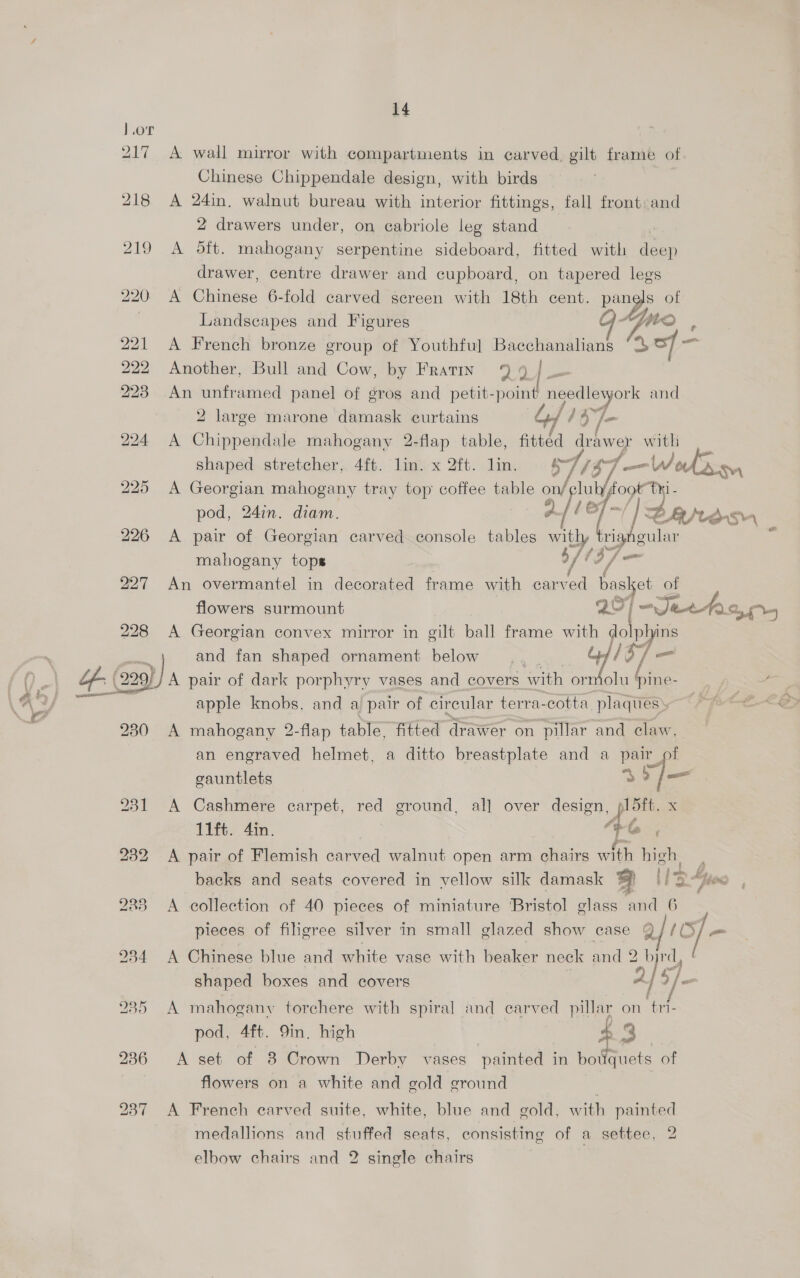 14
Lot
217 A wall mirror with compartments in carved gilt frame of
Chinese Chippendale design, with birds
218 A 24in. walnut bureau with interior fittings, fall front and
2 drawers under, on cabriole leg stand
219 A 5ft. mahogany serpentine sideboard, fitted with deep
drawer, centre drawer and cupboard, on tapered legs
220 A Chinese 6-fold carved screen with 18th cent. panels of
Landscapes and Figures
221 A French bronze group of Youthful Bacchanalians
222 Another, Bull and Cow, by FRATIN
223 An unframed panel of gros and petit-point needlework and
2 large marone damask curtains
224 A Chippendale mahogany 2-flap table, fitted drawer with
shaped stretcher, 4ft. 1in. x 2ft. 1in.
225 A Georgian mahogany tray top coffee table on club foot tri-
pod, 24in. diam.
226 A pair of Georgian carved console tables with triangular
mahogany tops
227 An overmantel in decorated frame with carved basket of
flowers surmount
228 A Georgian convex mirror in gilt ball frame with dolphins
and fan shaped ornament below
229 A pair of dark porphyry vases and covers with ormolu pine-
apple knobs, and a pair of circular terra-cotta plaques
230 A mahogany 2-flap table, fitted drawer on pillar and claw,
an engraved helmet, a ditto breastplate and a pair of
gauntlets
231 A Cashmere carpet, red ground, all over design, 15ft. x
11ft. 4in.
232 A pair of Flemish carved walnut open arm chairs with high
backs and seats covered in yellow silk damask
233 A collection of 40 pieces of miniature Bristol glass and 6
pieces of filigree silver in small glazed show case
234 A Chinese blue and white vase with beaker neck and 2 bird
shaped boxes and covers
235 A mahogany torchere with spiral and carved pillar on tri-
pod, 4ft. 9in. high
236 A set of 3 Crown Derby vases painted in bouquets of
flowers on a white and gold ground
237 A French carved suite, white, blue and gold, with painted
medallions and stuffed seats, consisting of a settee, 2
elbow chairs and 2 single chairs